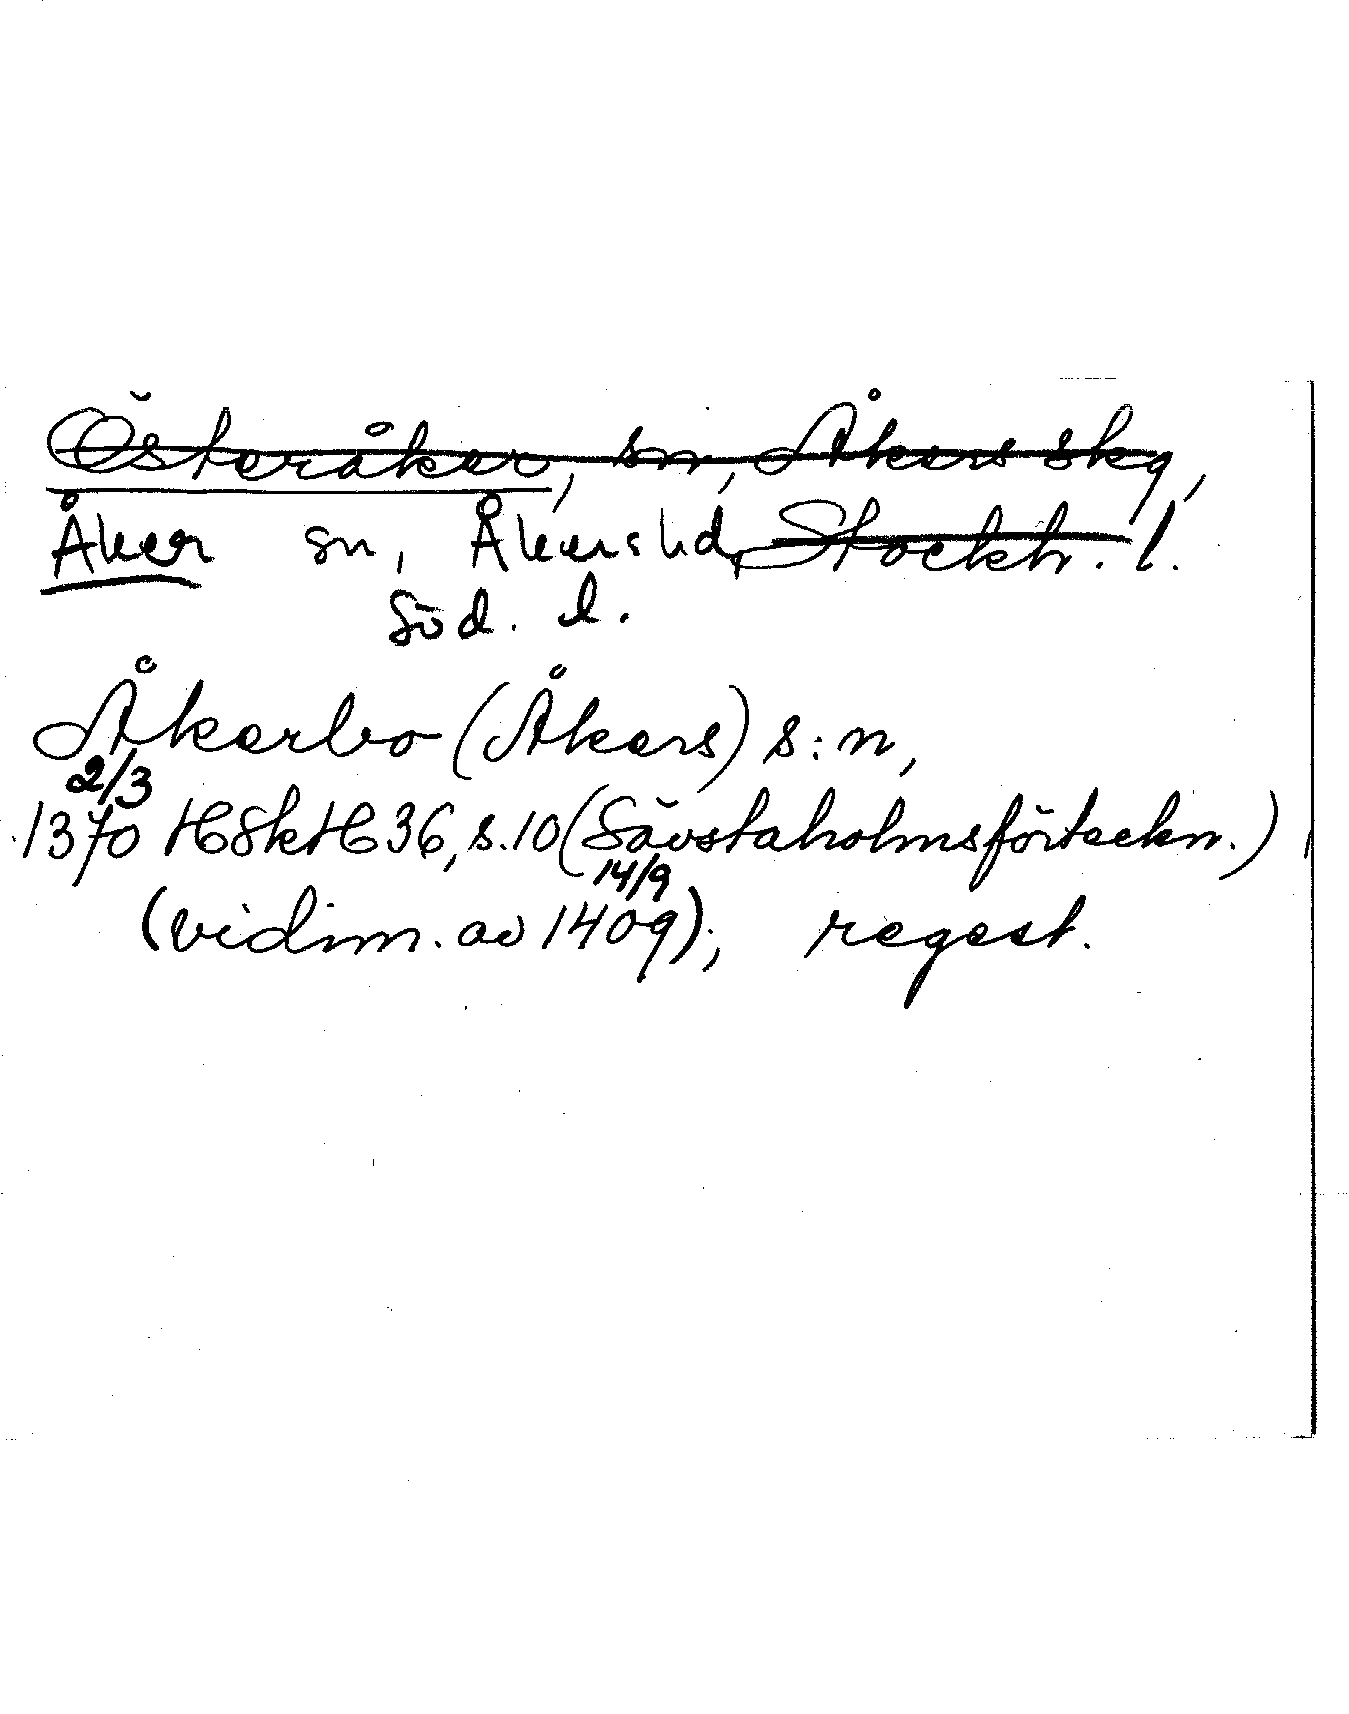 Österåker, sn, Åkers skg,
Åker sn, Åkers hd, Stockh. l.
Söd. l.
Åkerbo (Åkers) s:n,
2/3
1370 HSkH 36, s.10 (Sävstaholmsförteckn.)
14/9
(vidim. av 1409), regest.